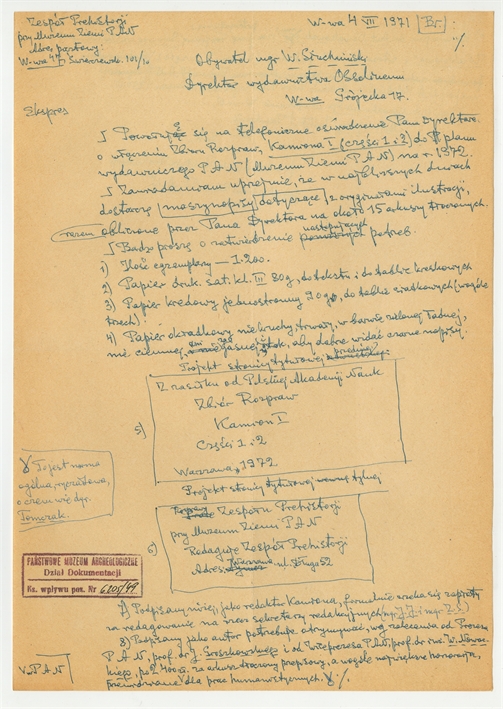 Zespół Prehistorji
przy Muzeum Ziemi PAN
Adres pocztowy:
W-wa
W-wa 4 VII 1971
Br.
·/.
Obywatel mgr W.
Dyrektor wydawnictwa Ossolineum
W-wa Grójecka 17.
Ekspres
Powołując się na telefoniczne oświadczenie Pana Dyrektora
o włączeniu Zbioru Rozpraw, Kamiona I (części 1 i 2) do planu
wydawniczego PAN (Muzeum Ziemi PAN) na r. 1972.
Zawiadamiam uprzejmie, że w najbliższych dniach
dostarczę maszynopisy dotyczące z oryginałami ilustracji,
razem obliczone przez Pana Dyrektora na około 15 arkuszy drukowanych.
Bądź proszę o zatwierdzenie następujących potrzeb.
1) Ilość egzemplarzy — 1.200.
2) Papier druk. sat. kl. III 80g, do tekstu i do tablic kreskowych
3) Papier kredowy jednostronny 90g, do tablic siatkowych (wogóle
trzech).
4) Papier okładkowy niekruchy, trwały, w barwie zielonej ładnej,
nie ciemnej, aby dobrze widać czarne napisy.
Projekt strony tytułowej
5)
Z zasiłku od Polskiej Akademji Nauk
Zbiór Rozpraw
Kamion I
Części 1 i 2
Warszawa, 1972
Projekt strony tytułowej wewnętrznej
6)
Zespołu Prehistorji
przy Muzeum Ziemi PAN
Redaguje Zespół Prehistorji
Adres: Warszawa ul. Długa 52
To jest nazwa
ogólna,
o czem wie dyr.
Tomczak.
PAŃSTWOWE MUZEUM ARCHEOLOGICZNE
Dział Dokumentacji
Ks. wpływu poz. Nr 6205/49
7) Podpisany niżej, jako redaktor Kamiona, formalnie zrzeka się zapłaty
za redagowanie na rzecz sekretarzy redakcyjnych
8) Podpisany jako autor potrzebuje otrzymywać, wg zalecenia od Prezesa
PAN, prof. dr J. Groszkowskiego i od Wiceprezesa PAN, prof. dr
po 2400 zł. za arkusz autorski przepisowy, a wogóle największe honorarja,
przewidziane dla prac humanistycznych. ·/.
V-PAN